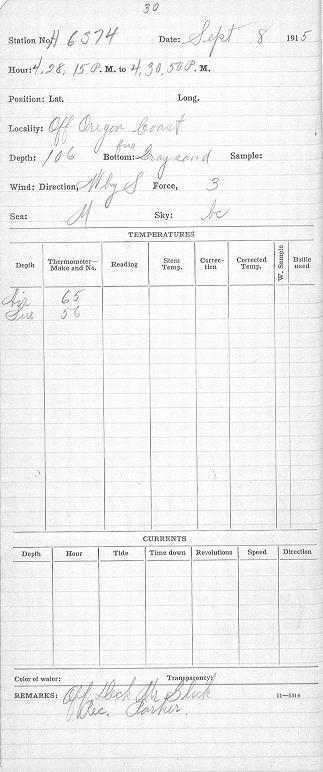 30
Station No. H 6374 Date: Sept 8 1915
Hour: 4, 28, 15 P. M. to 4, 30, 50 P. M.
Position: Lat. Long.
Locality: Off Oregon Coast
fne
Depth: 106 Bottom: Gray sand Sample:
Wind: Direction, W by S Force, 3
Sea: M Sky: bc
TEMPERATURES
Depth Thermometer—Make and No. Reading Stem Temp. Correc-tion Corrected Temp. W. Sample Bottle used
Air 65
Sur 56
CURRENTS
Depth Hour Tide Time down Revolutions Speed Direction
Color of water: Transparency:
REMARKS: Off Deck Mr Slick 11—5314
Rec. Parker.